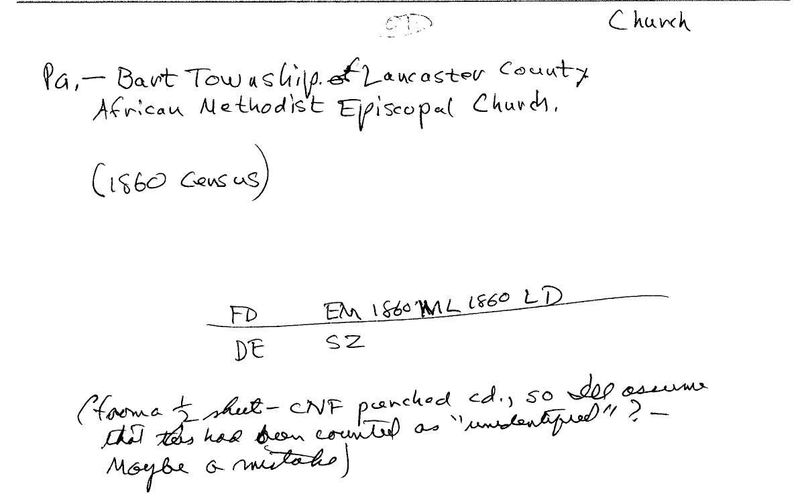 Church
Pa, - Bart Township of Lancaster County
African Methodist Episcopal Church.
(1860 Census)
FD EM 1860 ML 1860 LD
DE SZ
(from a 1/2 sheet - CNF punched cd., so I'll assume
that this had been counted as "unidentified"? -
Maybe a mistake)